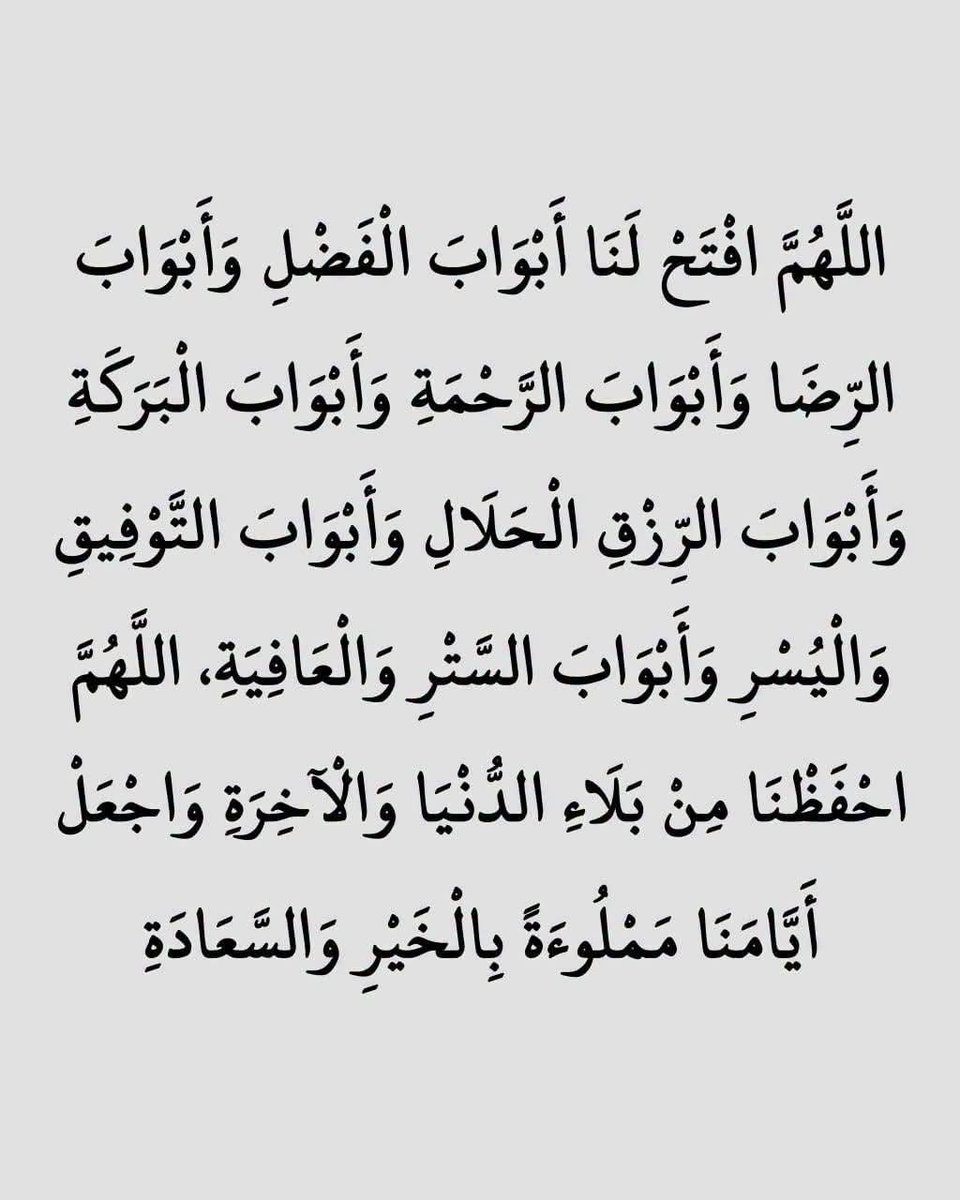 اللَّهُمَّ افْتَحْ لَنَا أَبْوَابَ الْفَضْلِ وَأَبْوَابَ
الرِّضَا وَأَبْوَابَ الرَّحْمَةِ وَأَبْوَابَ الْبَرَكَةِ
وَأَبْوَابَ الرِّزْقِ الْحَلَالِ وَأَبْوَابَ التَّوْفِيقِ
وَالْيُسْرِ وَأَبْوَابَ السَّتْرِ وَالْعَافِيَةِ، اللَّهُمَّ
احْفَظْنَا مِنْ بَلَاءِ الدُّنْيَا وَالْآخِرَةِ وَاجْعَلْ
أَيَّامَنَا مَمْلُوءَةً بِالْخَيْرِ وَالسَّعَادَةِ